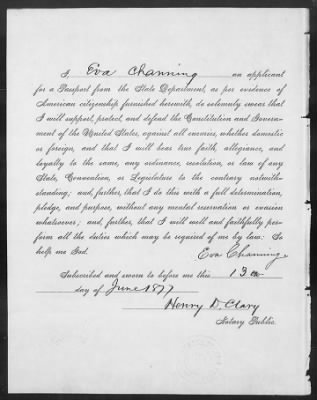 I, Eva Channing an applicant
for a Passport from the State Department, as per evidence of
American citizenship furnished herewith, do solemnly swear that
I will support, protect, and defend the Constitution and Govern-
ment of the United States, against all enemies, whether domestic
or foreign, and that I will bear true faith, allegiance, and
loyalty to the same, any ordinance, resolution, or law of any
State, Convention, or Legislature to the contrary notwith-
standing; and, further, that I do this with a full determination,
pledge, and purpose, without any mental reservation or evasion
whatsoever; and, further, that I will well and faithfully per-
form all the duties which may be required of me by law: So
help me God.
Eva Channing
Subscribed and sworn to before me this 13
day of June 1877
Henry D. Clary
Notary Public.